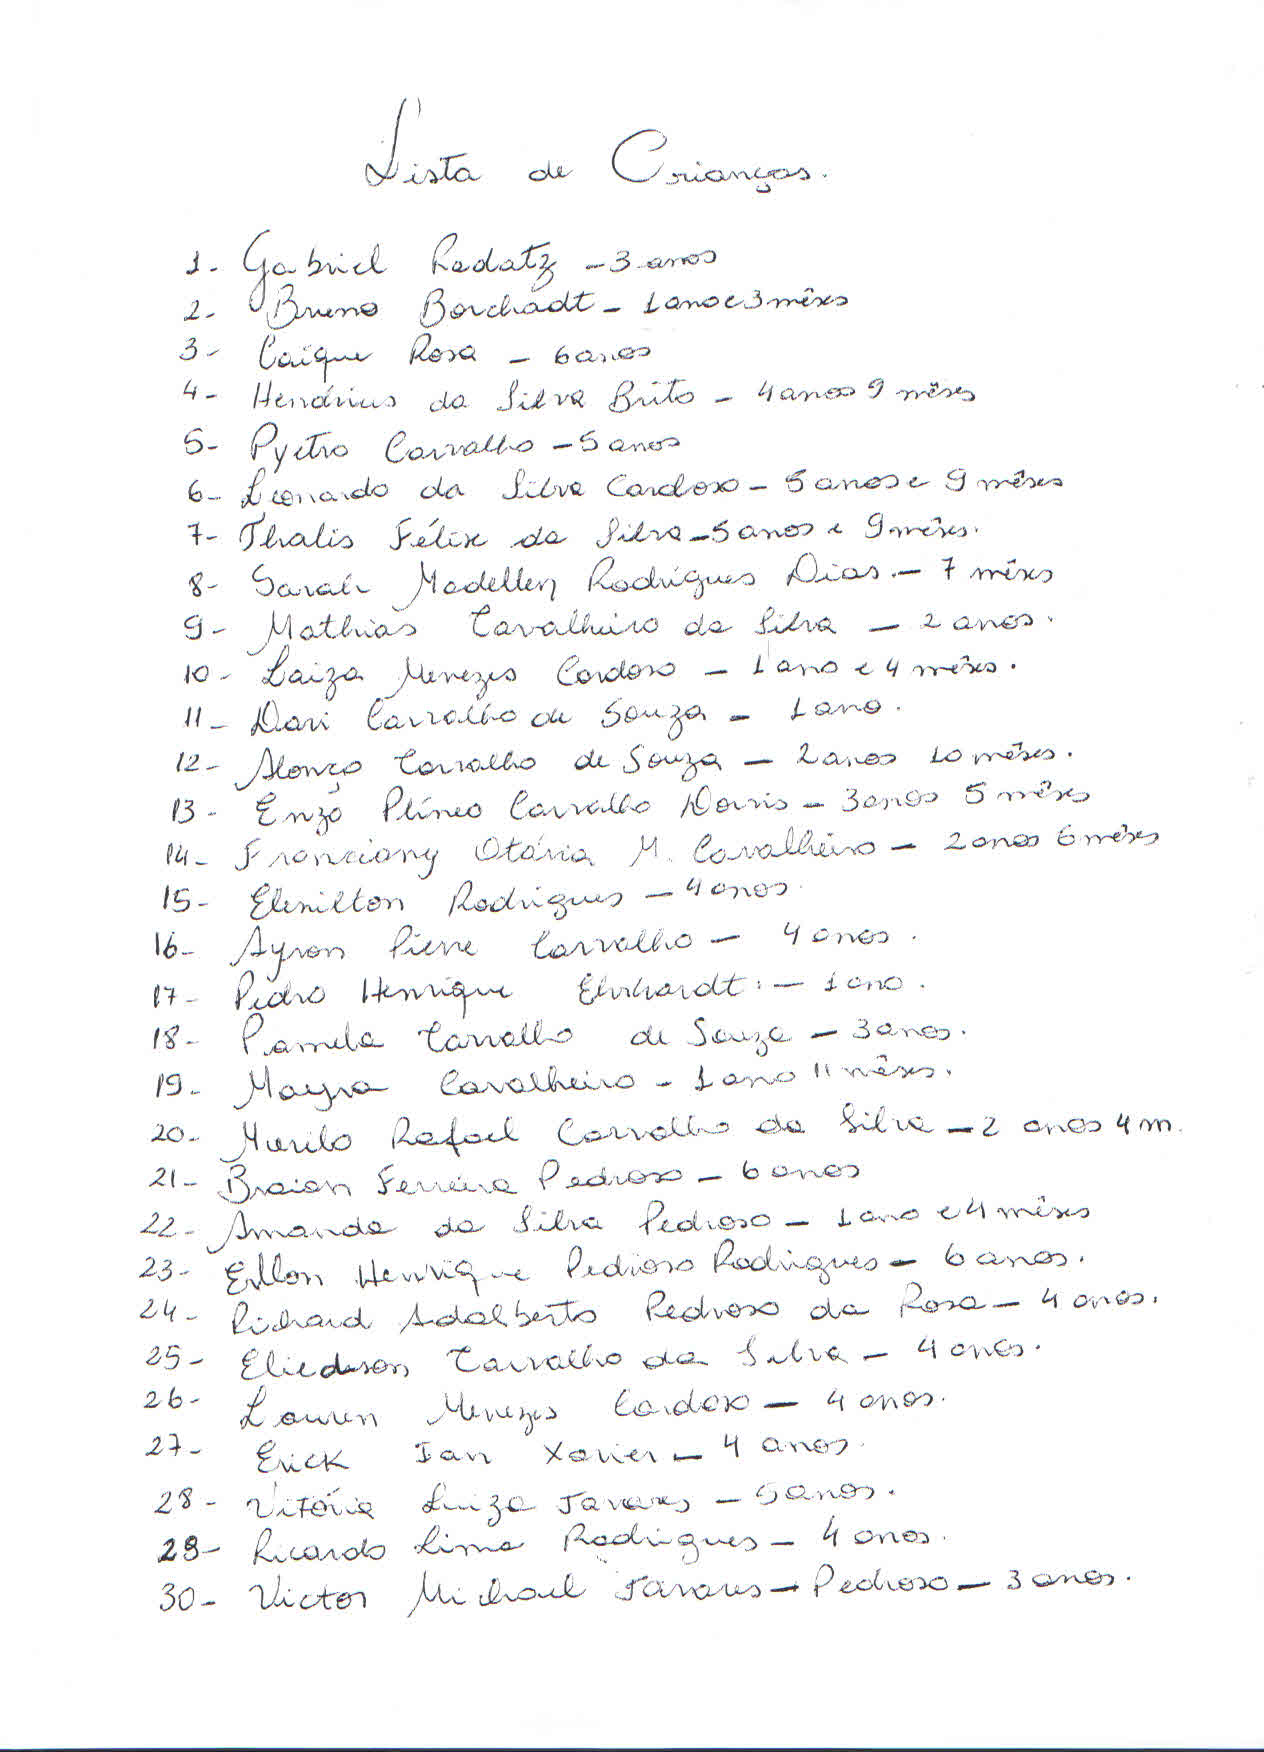 Lista de Crianças.
1- Gabriel Radatz - 3 anos
2- Bruno Borchadt - 1 ano e 3 mêses
3- Caíque Rosa - 6 anos
4- Hendrius da Silva Brito - 4 anos 9 mêses
5- Pyetro Carvalho - 5 anos
6- Leonardo da Silva Cardoso - 5 anos e 9 mêses
7- Thalis Félix da Silva - 5 anos e 9 mêses.
8- Sarah Madellen Rodrigues Dias. - 7 mêses
9- Mathias Cavalheiro da Silva - 2 anos.
10- Laiza Menezes Cardoso - 1 ano e 4 mêses.
11- Davi Carvalho de Souza - 1 ano.
12- Alonço Carvalho de Souza - 2 anos 10 mêses.
13- Enzo Plíneo Carvalho Dorris - 3 anos 5 mêses
14- Franciany Otávia M. Cavalheiro - 2 anos 6 mêses
15- Elenilton Rodrigues - 4 anos.
16- Ayron Pierre Carvalho - 4 anos.
17- Pedro Henrique Ehrhardt: - 1 ano.
18- Pamela Carvalho de Souza - 3 anos.
19- Mayra Cavalheiro - 1 ano 11 mêses.
20- Murilo Rafael Carvalho da Silva - 2 anos 4 m.
21- Braian Ferreira Pedroso - 6 anos
22- Amanda da Silva Pedroso - 1 ano e 4 mêses
23- Erllon Henrique Pedroso Rodrigues - 6 anos.
24- Richard Adalberto Pedroso da Rosa - 4 anos.
25- Eliedson Carvalho da Silva - 4 anos.
26- Lauren Menezes Cardoso - 4 anos.
27- Erick Ian Xavier - 4 anos.
28- Vitória Luiza Tavares - 5 anos.
29- Ricardo Lima Rodrigues - 4 anos.
30- Victor Michael Tavares - Pedroso - 3 anos.